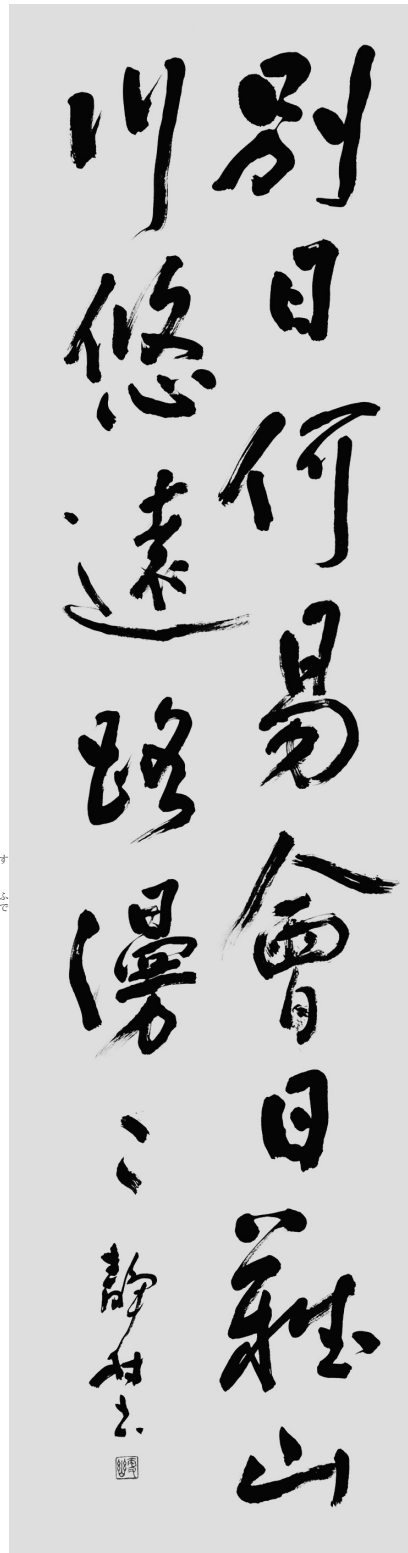 別日何易會日難山
川悠遠路漫々
靜村書
す ふで